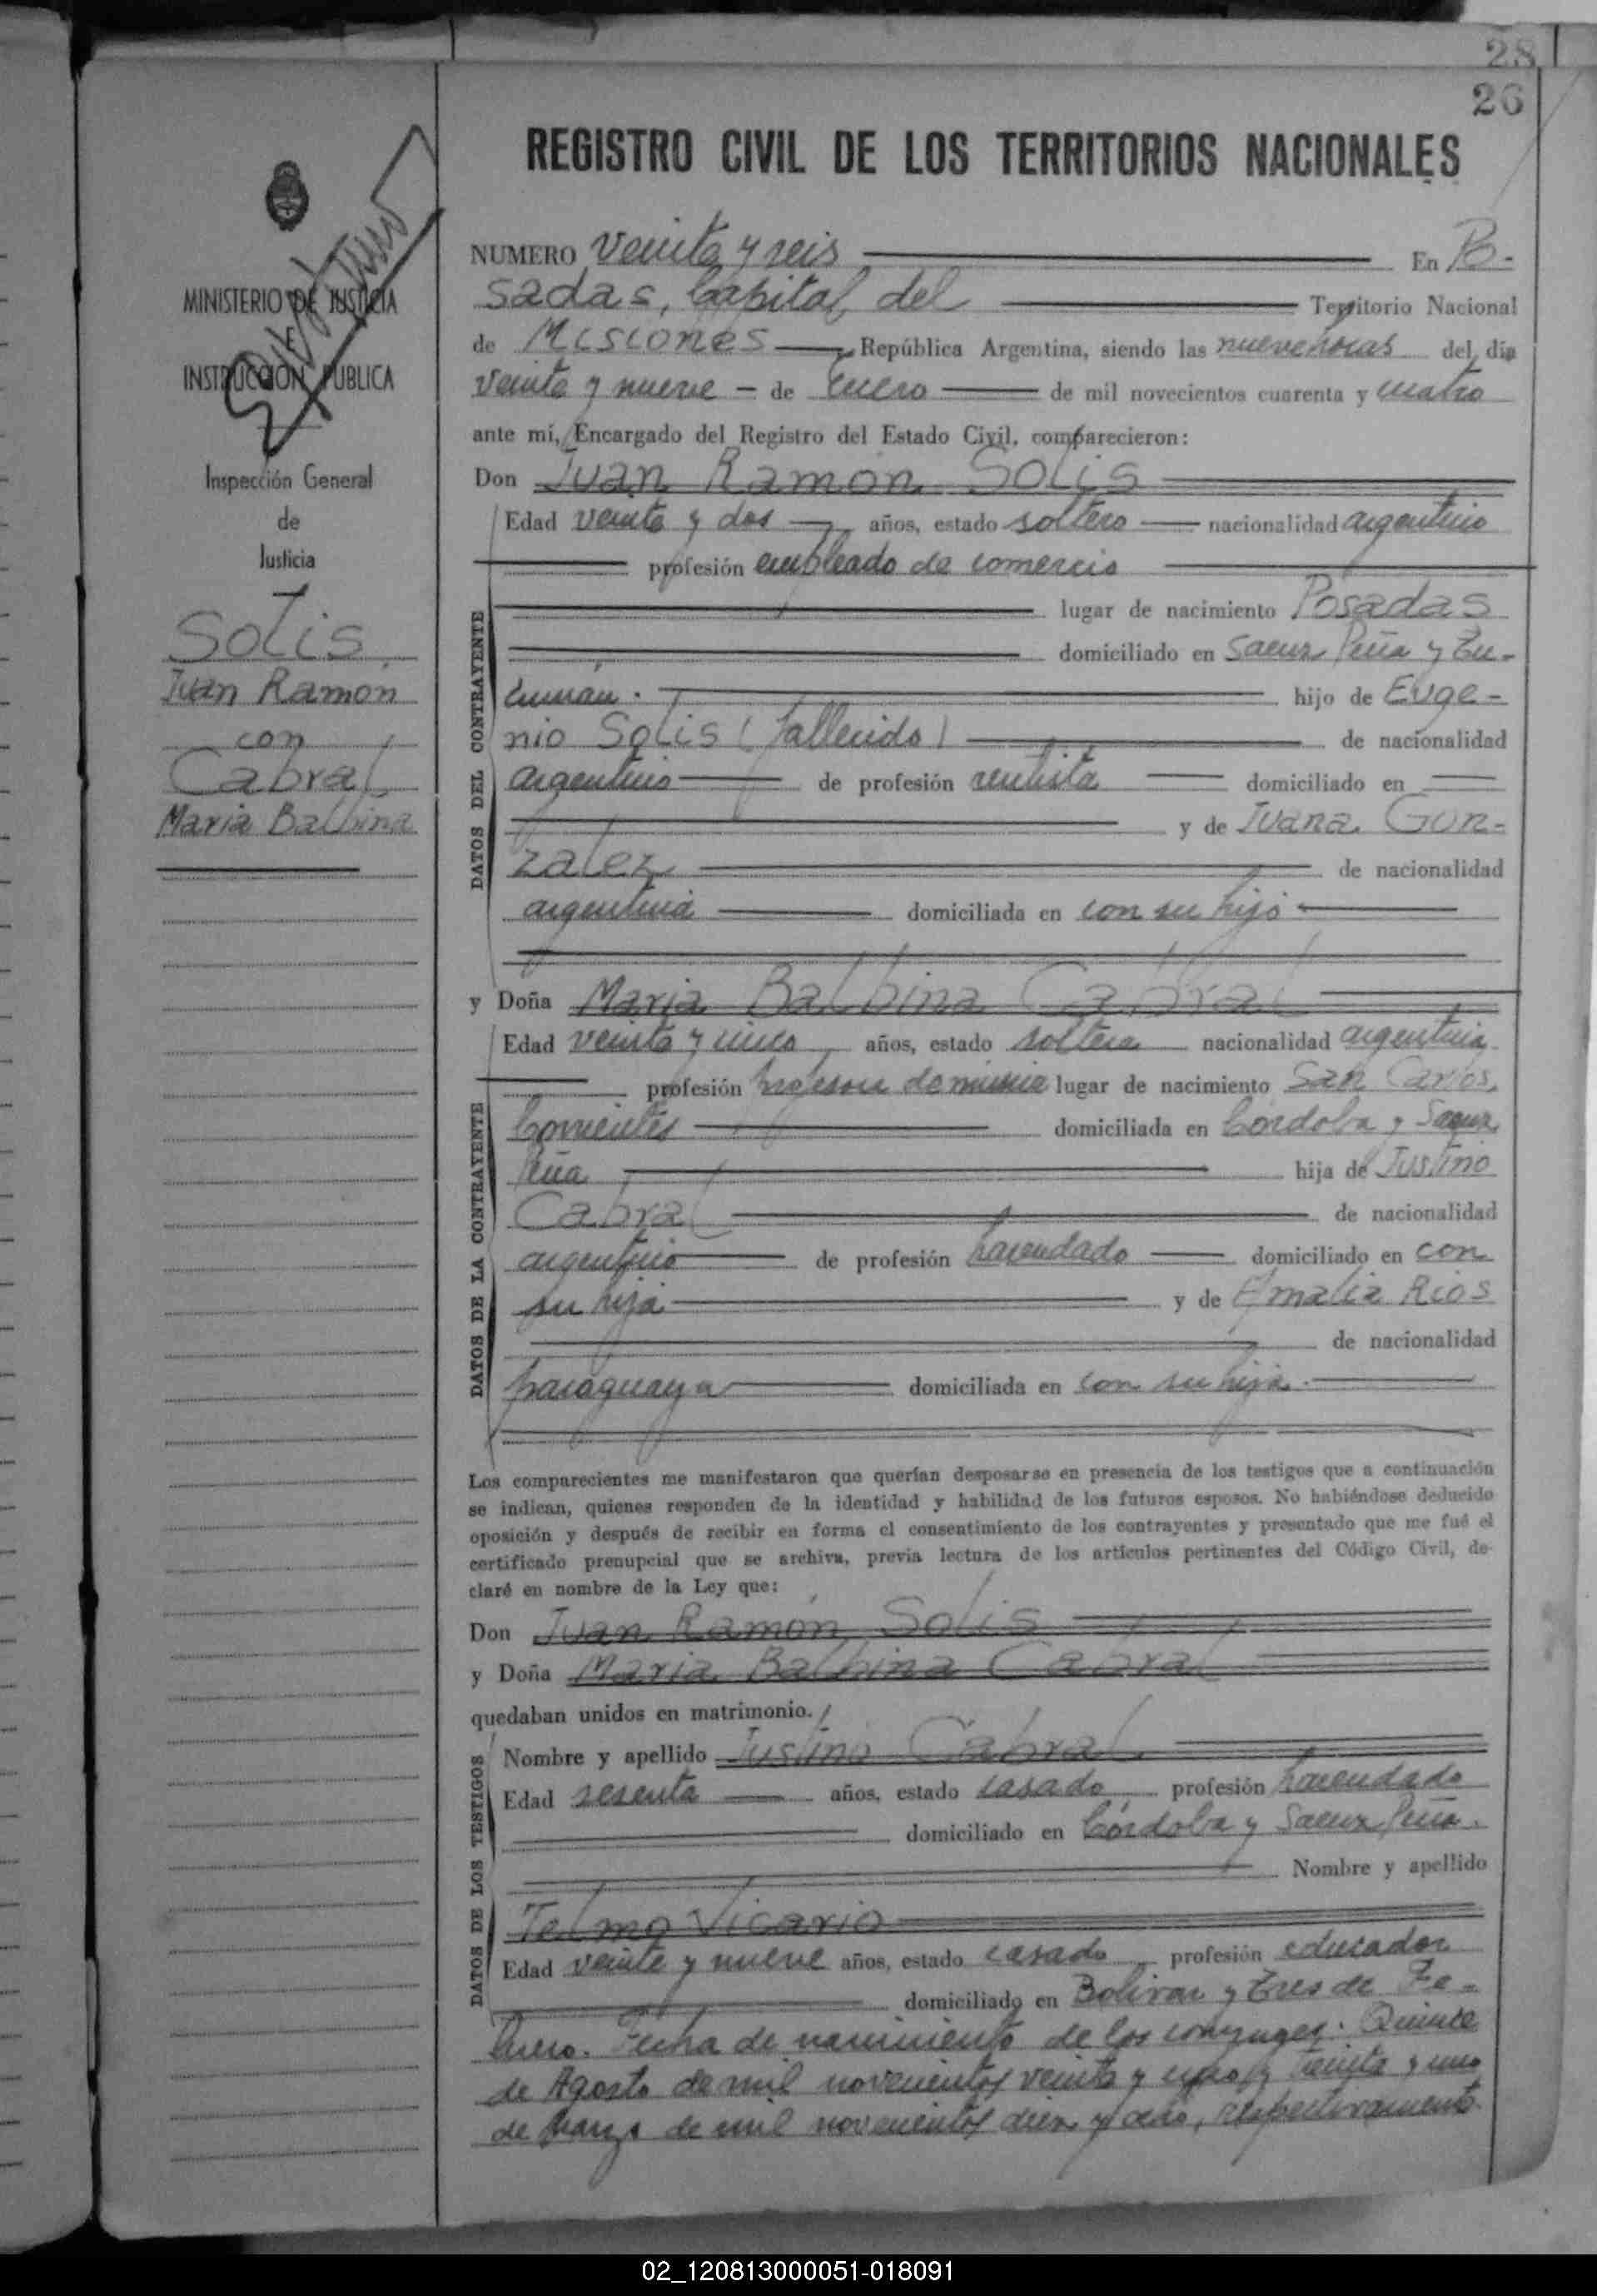 28
26
REGISTRO CIVIL DE LOS TERRITORIOS NACIONALES
MINISTERIO DE JUSTICIA
E
INSTRUCCIÓN PUBLICA
Inspección General
de
Justicia
Solis,
Juan Ramón
con
Cabral
Maria Balbina
NUMERO veinte y seis En Po-
sadas, Capital del Territorio Nacional
de Misiones República Argentina, siendo las nueve horas del día
veinte y nueve de Enero de mil novecientos cuarenta y cuatro
ante mí, Encargado del Registro del Estado Civil, comparecieron:
Don Juan Ramón Solis
Edad veinte y dos años, estado soltero nacionalidad argentino
profesión empleado de comercio
lugar de nacimiento Posadas
domiciliado en Saenz Peña y Tu-
cumán. hijo de Euge-
nio Solis (fallecido) de nacionalidad
argentino de profesión rentista domiciliado en
y de Juana Gon-
zalez de nacionalidad
argentina domiciliada en con su hijo
DATOS DEL CONTRAYENTE
y Doña Maria Balbina Cabral
Edad veinte y cinco años, estado soltera nacionalidad argentina
profesión profesora de música lugar de nacimiento San Carlos,
Corrientes domiciliada en Cordoba y Saenz
Peña hija de Justino
Cabral de nacionalidad
argentino de profesión hacendado domiciliado en con
su hija y de Emalia Rios
de nacionalidad
paraguaya domiciliada en con su hija.
DATOS DE LA CONTRAYENTE
Los comparecientes me manifestaron que querían desposarse en presencia de los testigos que a continuación
se indican, quienes responden de la identidad y habilidad de los futuros esposos. No habiéndose deducido
oposición y después de recibir en forma el consentimiento de los contrayentes y presentado que me fué el
certificado prenupcial que se archiva, previa lectura de los artículos pertinentes del Código Civil, de-
claré en nombre de la Ley que:
Don Juan Ramón Solis
y Doña Maria Balbina Cabral
quedaban unidos en matrimonio.
Nombre y apellido Justino Cabral
Edad sesenta años, estado casado profesión hacendado
domiciliado en Córdoba y Saenz Peña.
Nombre y apellido
Telmo Vicario
Edad veinte y nueve años, estado casado profesión educador
domiciliado en Bolivar y Tres de Fe-
brero. Fecha de nacimiento de los conyuges: Quince
de Agosto de mil novecientos veinte y uno y treinta y uno
de Marzo de mil novecientos diez y ocho, respectivamente.
DATOS DE LOS TESTIGOS
02_120813000051-018091